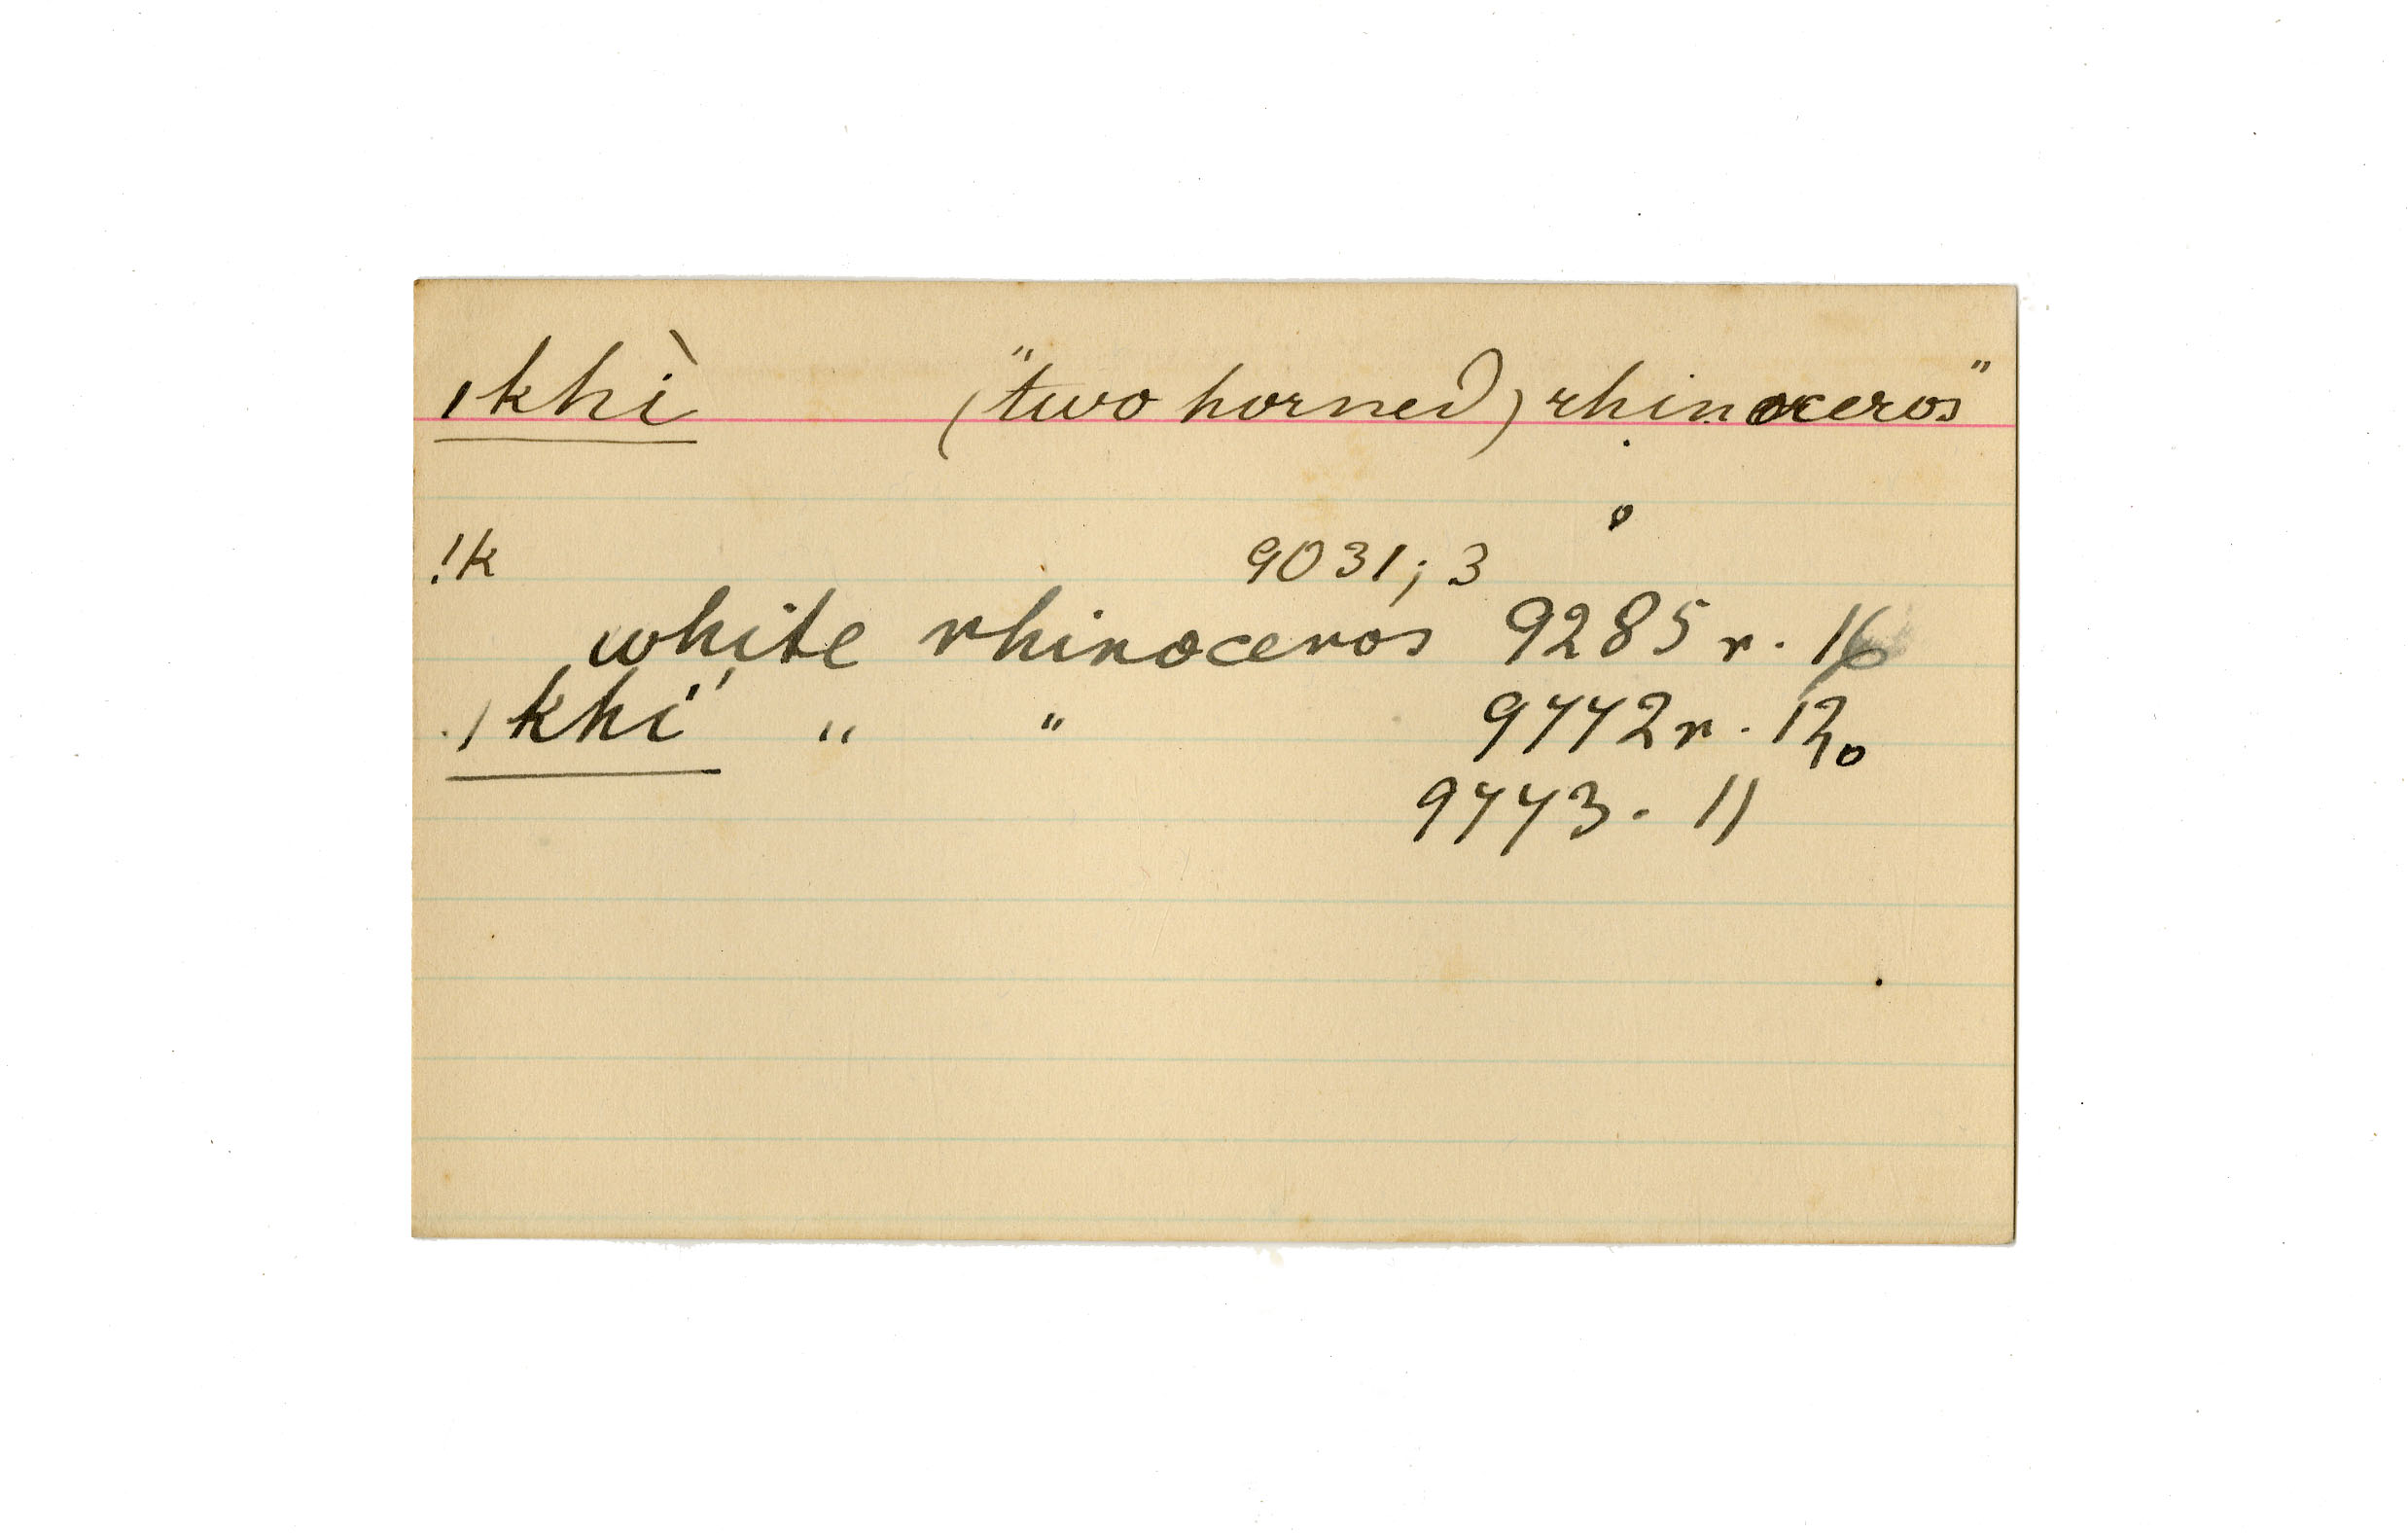 ǀkhì ("two horned) rhinoceros"
!k 9031; 3
white rhinoceros 9285 r. 16
ǀkhí " " 9772 r. 12
9773. 11